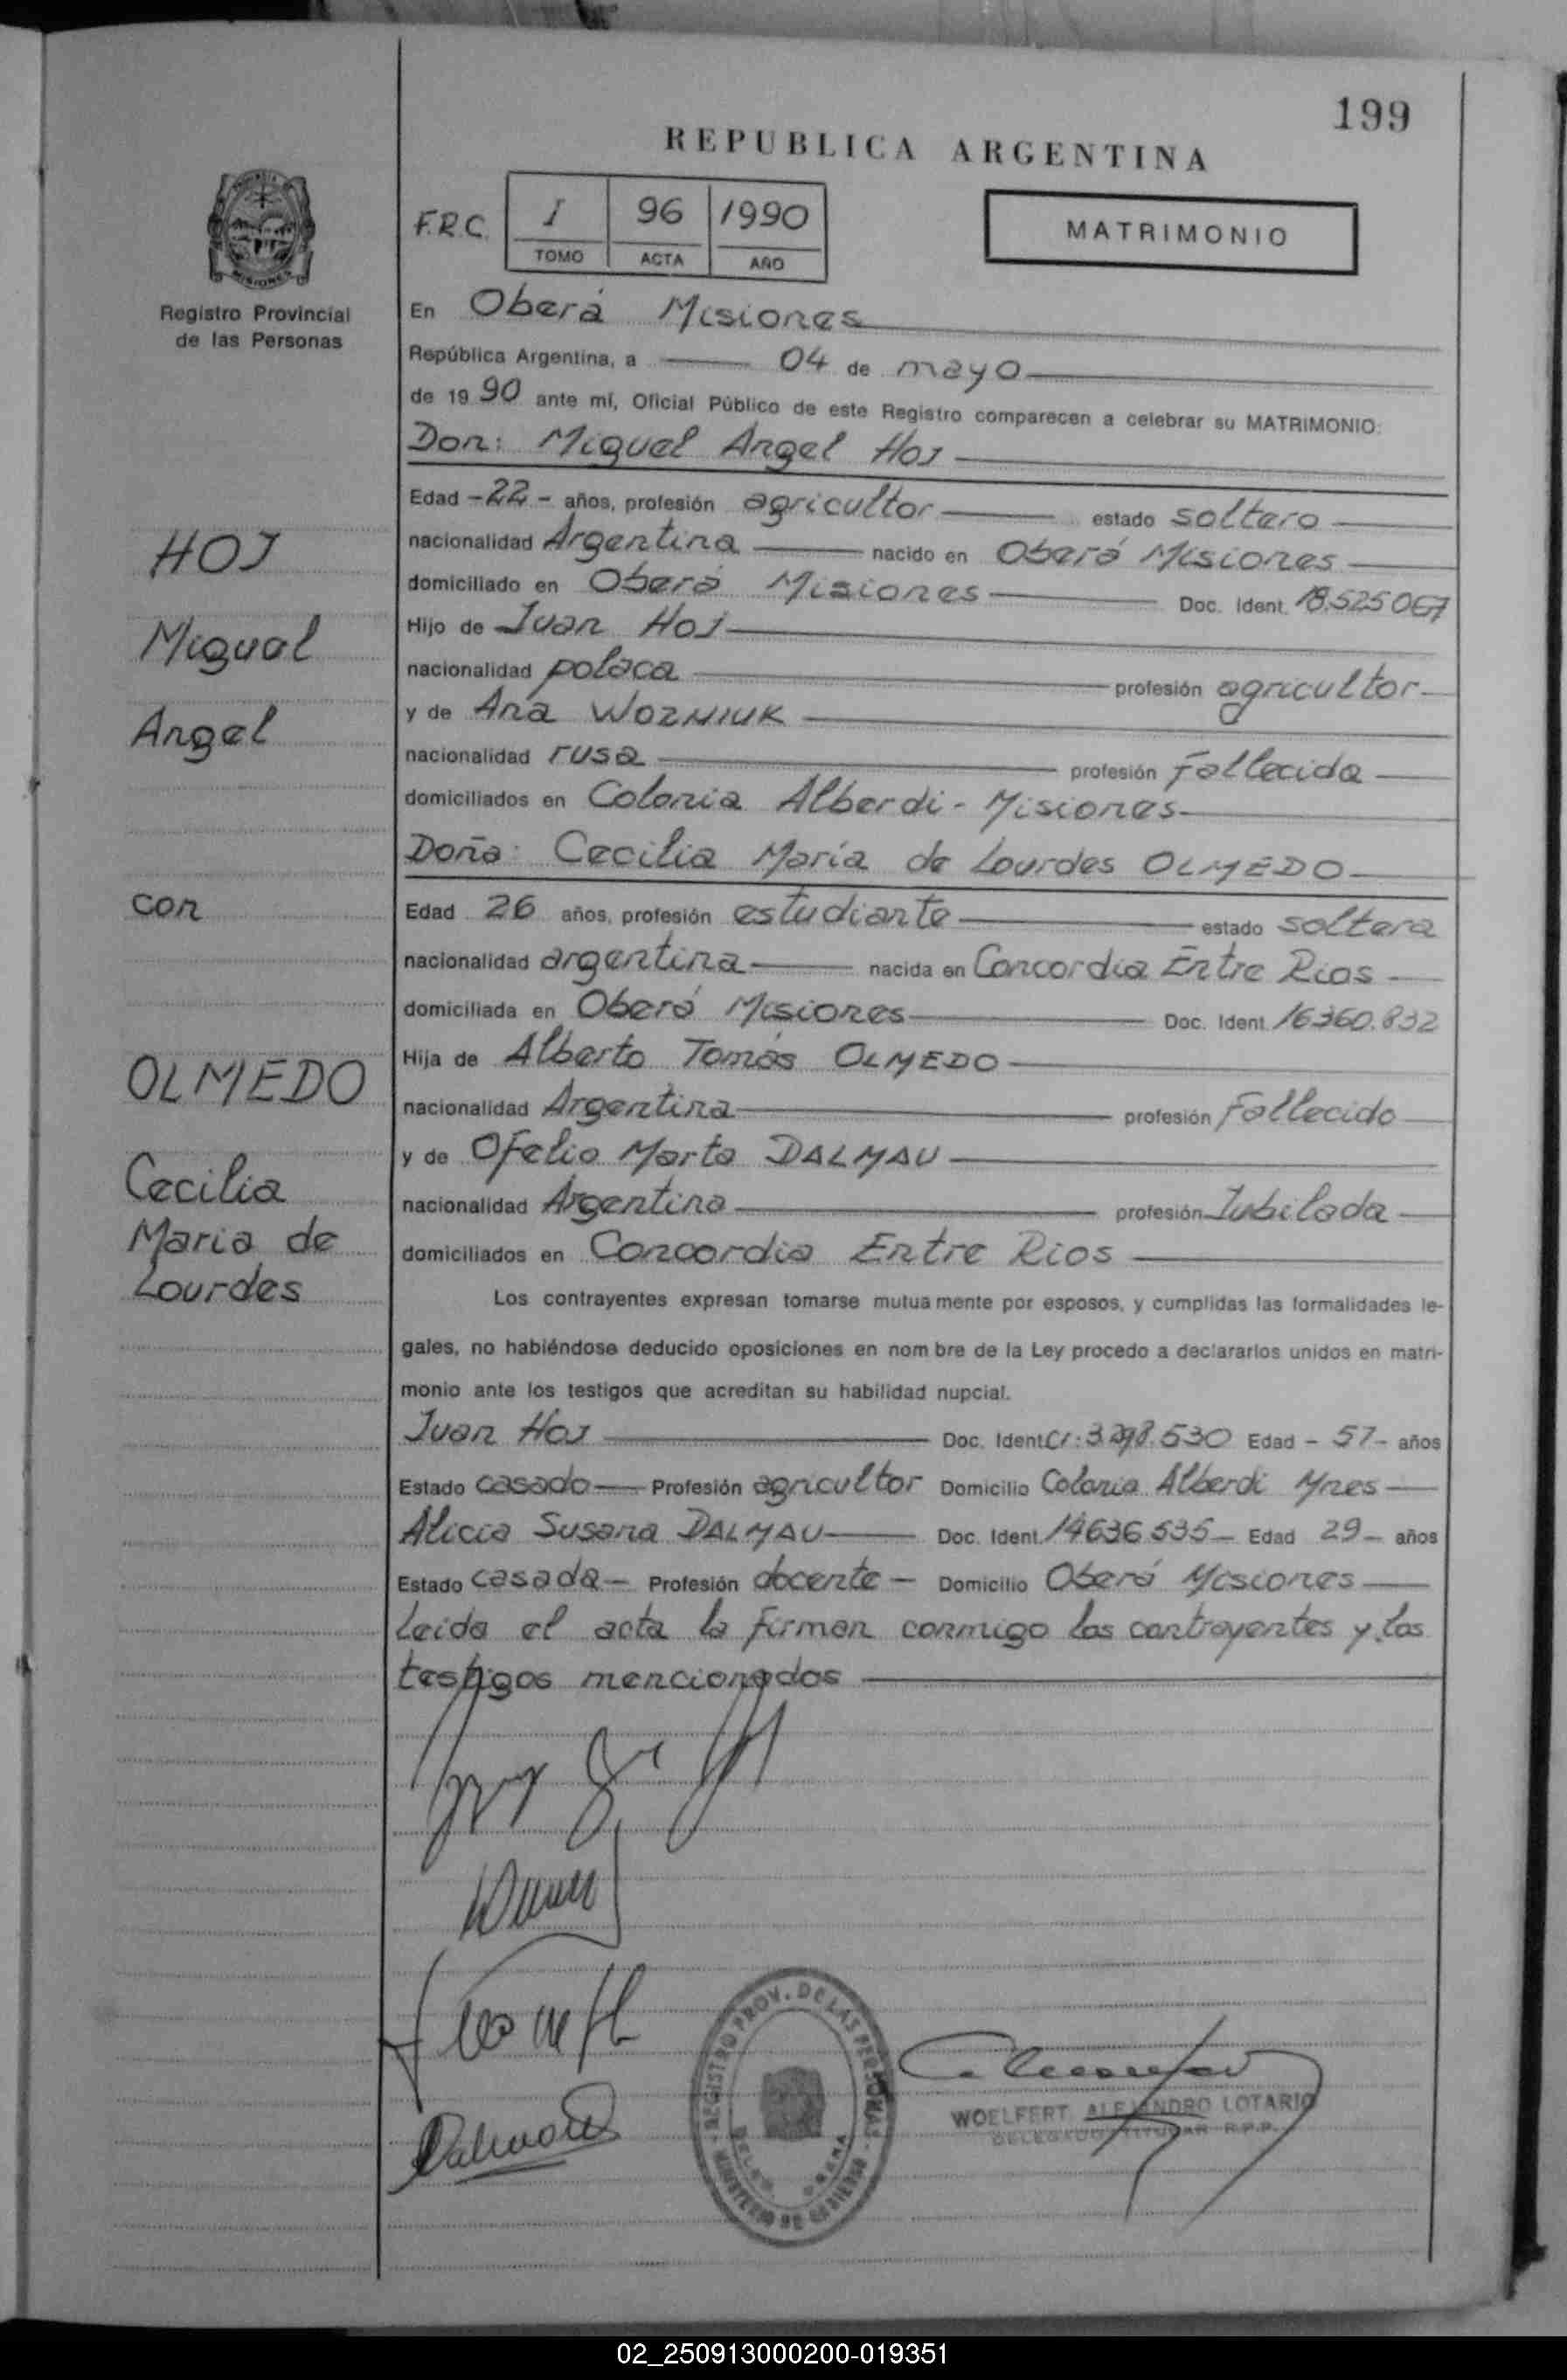 199
REPUBLICA ARGENTINA
F.R.C. I 96 1990
TOMO ACTA AÑO
MATRIMONIO
MISIONES
Registro Provincial
de las Personas
En Oberá Misiones
República Argentina, a 04 de mayo
de 1990 ante mí, Oficial Público de este Registro comparecen a celebrar su MATRIMONIO:
Don: Miguel Angel HOJ
Edad -22- años, profesión agricultor estado soltero
nacionalidad Argentina nacido en Oberá Misiones
domiciliado en Oberá Misiones Doc. Ident. 18.525.067
Hijo de Juan HOJ
nacionalidad polaca profesión agricultor
y de Ana WOZNIUK
nacionalidad rusa profesión Fallecida
domiciliados en Colonia Alberdi - Misiones
Doña: Cecilia María de Lourdes OLMEDO
Edad 26 años, profesión estudiante estado soltera
nacionalidad argentina nacida en Concordia Entre Rios
domiciliada en Oberá Misiones Doc. Ident. 16360.832
Hija de Alberto Tomás OLMEDO
nacionalidad Argentina profesión Fallecido
y de Ofelia Marta DALMAU
nacionalidad Argentina profesión Jubilada
domiciliados en Concordia Entre Rios
Los contrayentes expresan tomarse mutuamente por esposos, y cumplidas las formalidades le-
gales, no habiéndose deducido oposiciones en nombre de la Ley procedo a declararlos unidos en matri-
monio ante los testigos que acreditan su habilidad nupcial.
Juan HOJ Doc. Ident. CI: 530 Edad - 57 - años
Estado casado Profesión agricultor Domicilio Colonia Alberdi Mnes
Alicia Susana DALMAU Doc. Ident. 14636.535 Edad 29 - años
Estado casada - Profesión docente - Domicilio Oberá Misiones
Leida el acta la firman conmigo los contrayentes y los
testigos mencionados
HOJ
Miguel
Angel
con
OLMEDO
Cecilia
Maria de
Lourdes
REGISTRO PROV. DE LAS PERSONAS
MINISTERIO DE GOBIERNO
WOELFERT ALEJANDRO LOTARIO
DELEGADO TITULAR R.P.P.
02_250913000200-019351